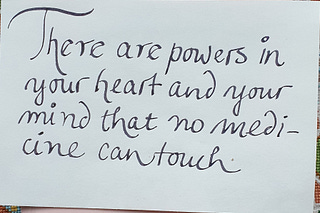 There are powers in
your heart and your
mind that no medi-
cine can touch.